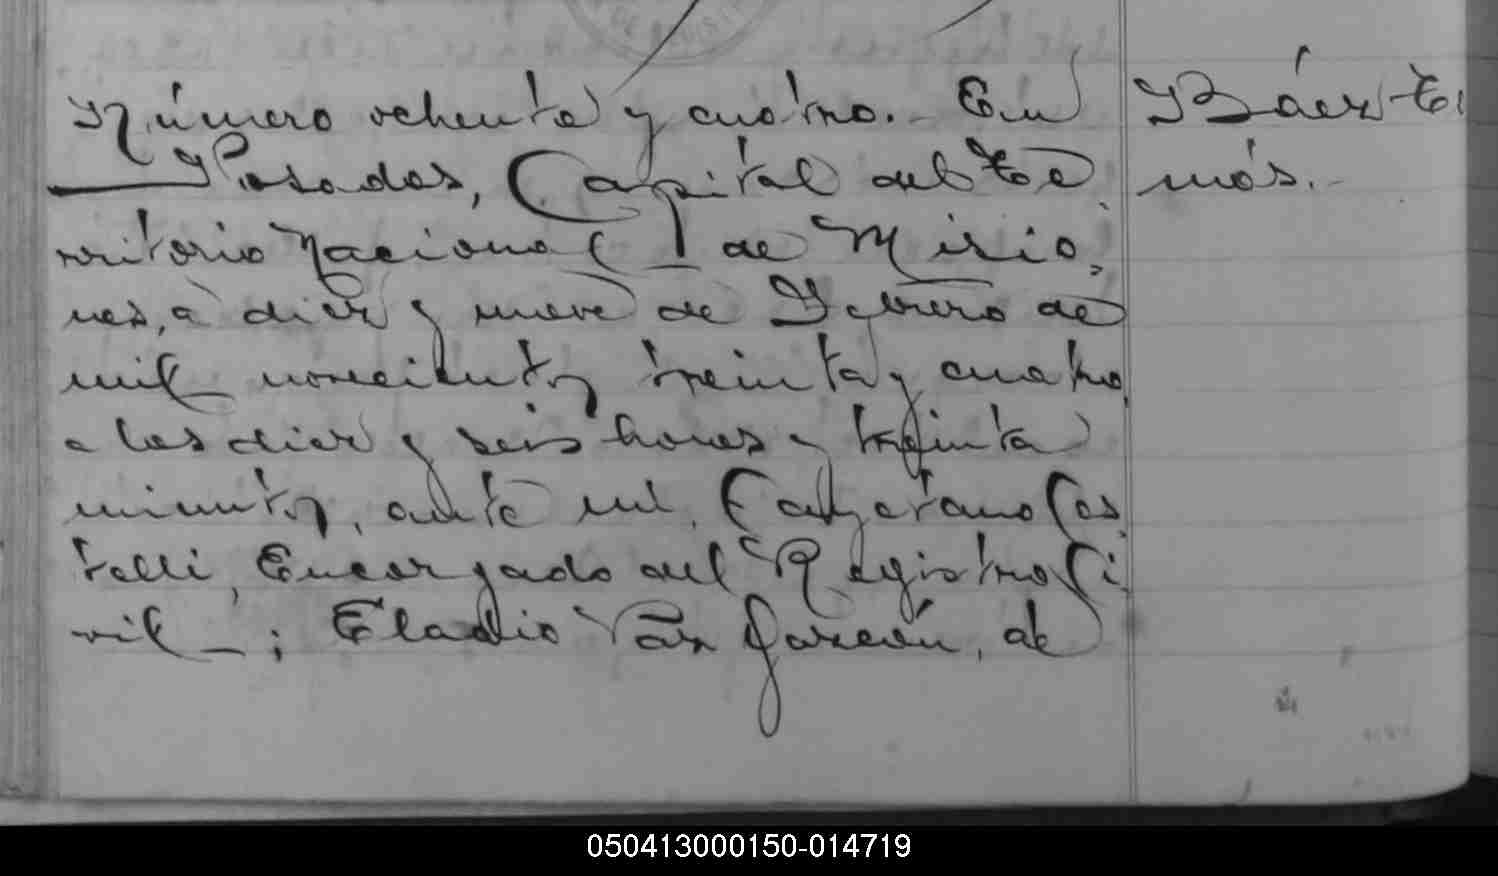 Número ochenta y cuatro.- En
Posadas, Capital del Te
rritorio Nacional de Misio,
nes, a diez y nueve de Febrero de
mil novecientos treinta y cuatro,
a las diez y seis horas y treinta
minutos, ante mi, Cayetano Cas
telli, Encargado del Registro Ci
vil-; Eladio Garzón, de
Báez To
más.-
050413000150-014719